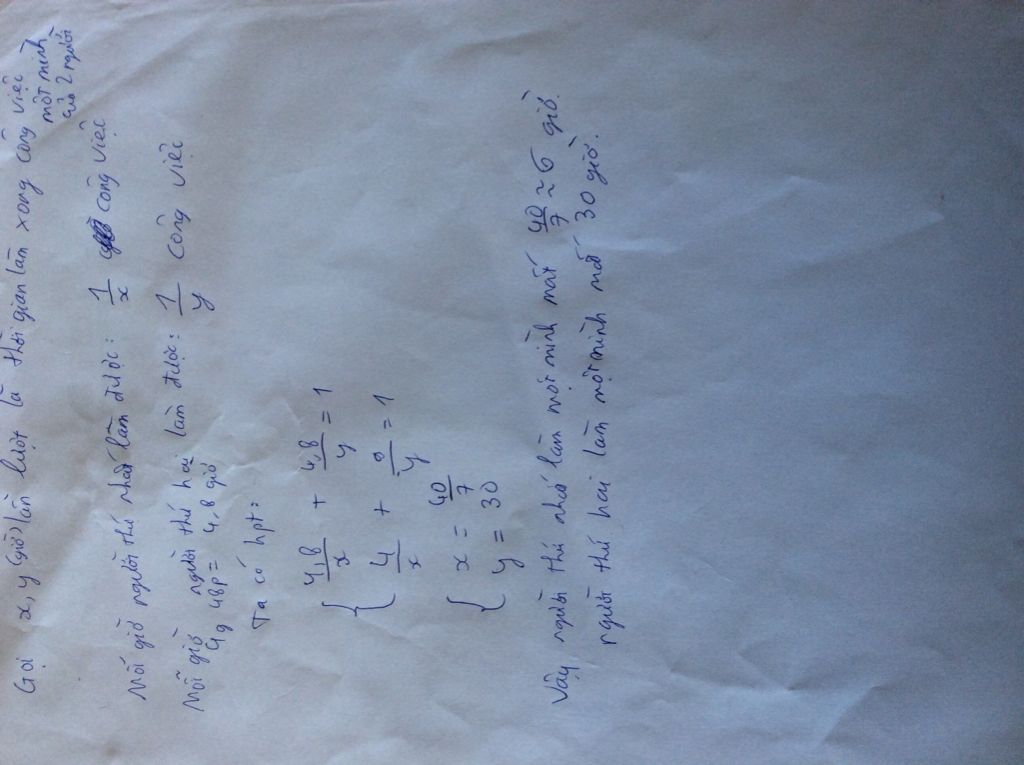 Gọi x, y (giờ) lần lượt là thời gian làm xong công việc
một mình
của 2 người
Mỗi giờ người thứ nhất làm được: 1/x công việc
Mỗi giờ người thứ hai làm được: 1/y công việc
4g 48p = 4,8 giờ
Ta có hpt:
{ 4,8/x + 4,8/y = 1
4/x + 9/y = 1
{ x = 40/7
y = 30
Vậy, người thứ nhất làm một mình mất 40/7 ≈ 6 giờ.
người thứ hai làm một mình mất 30 giờ.